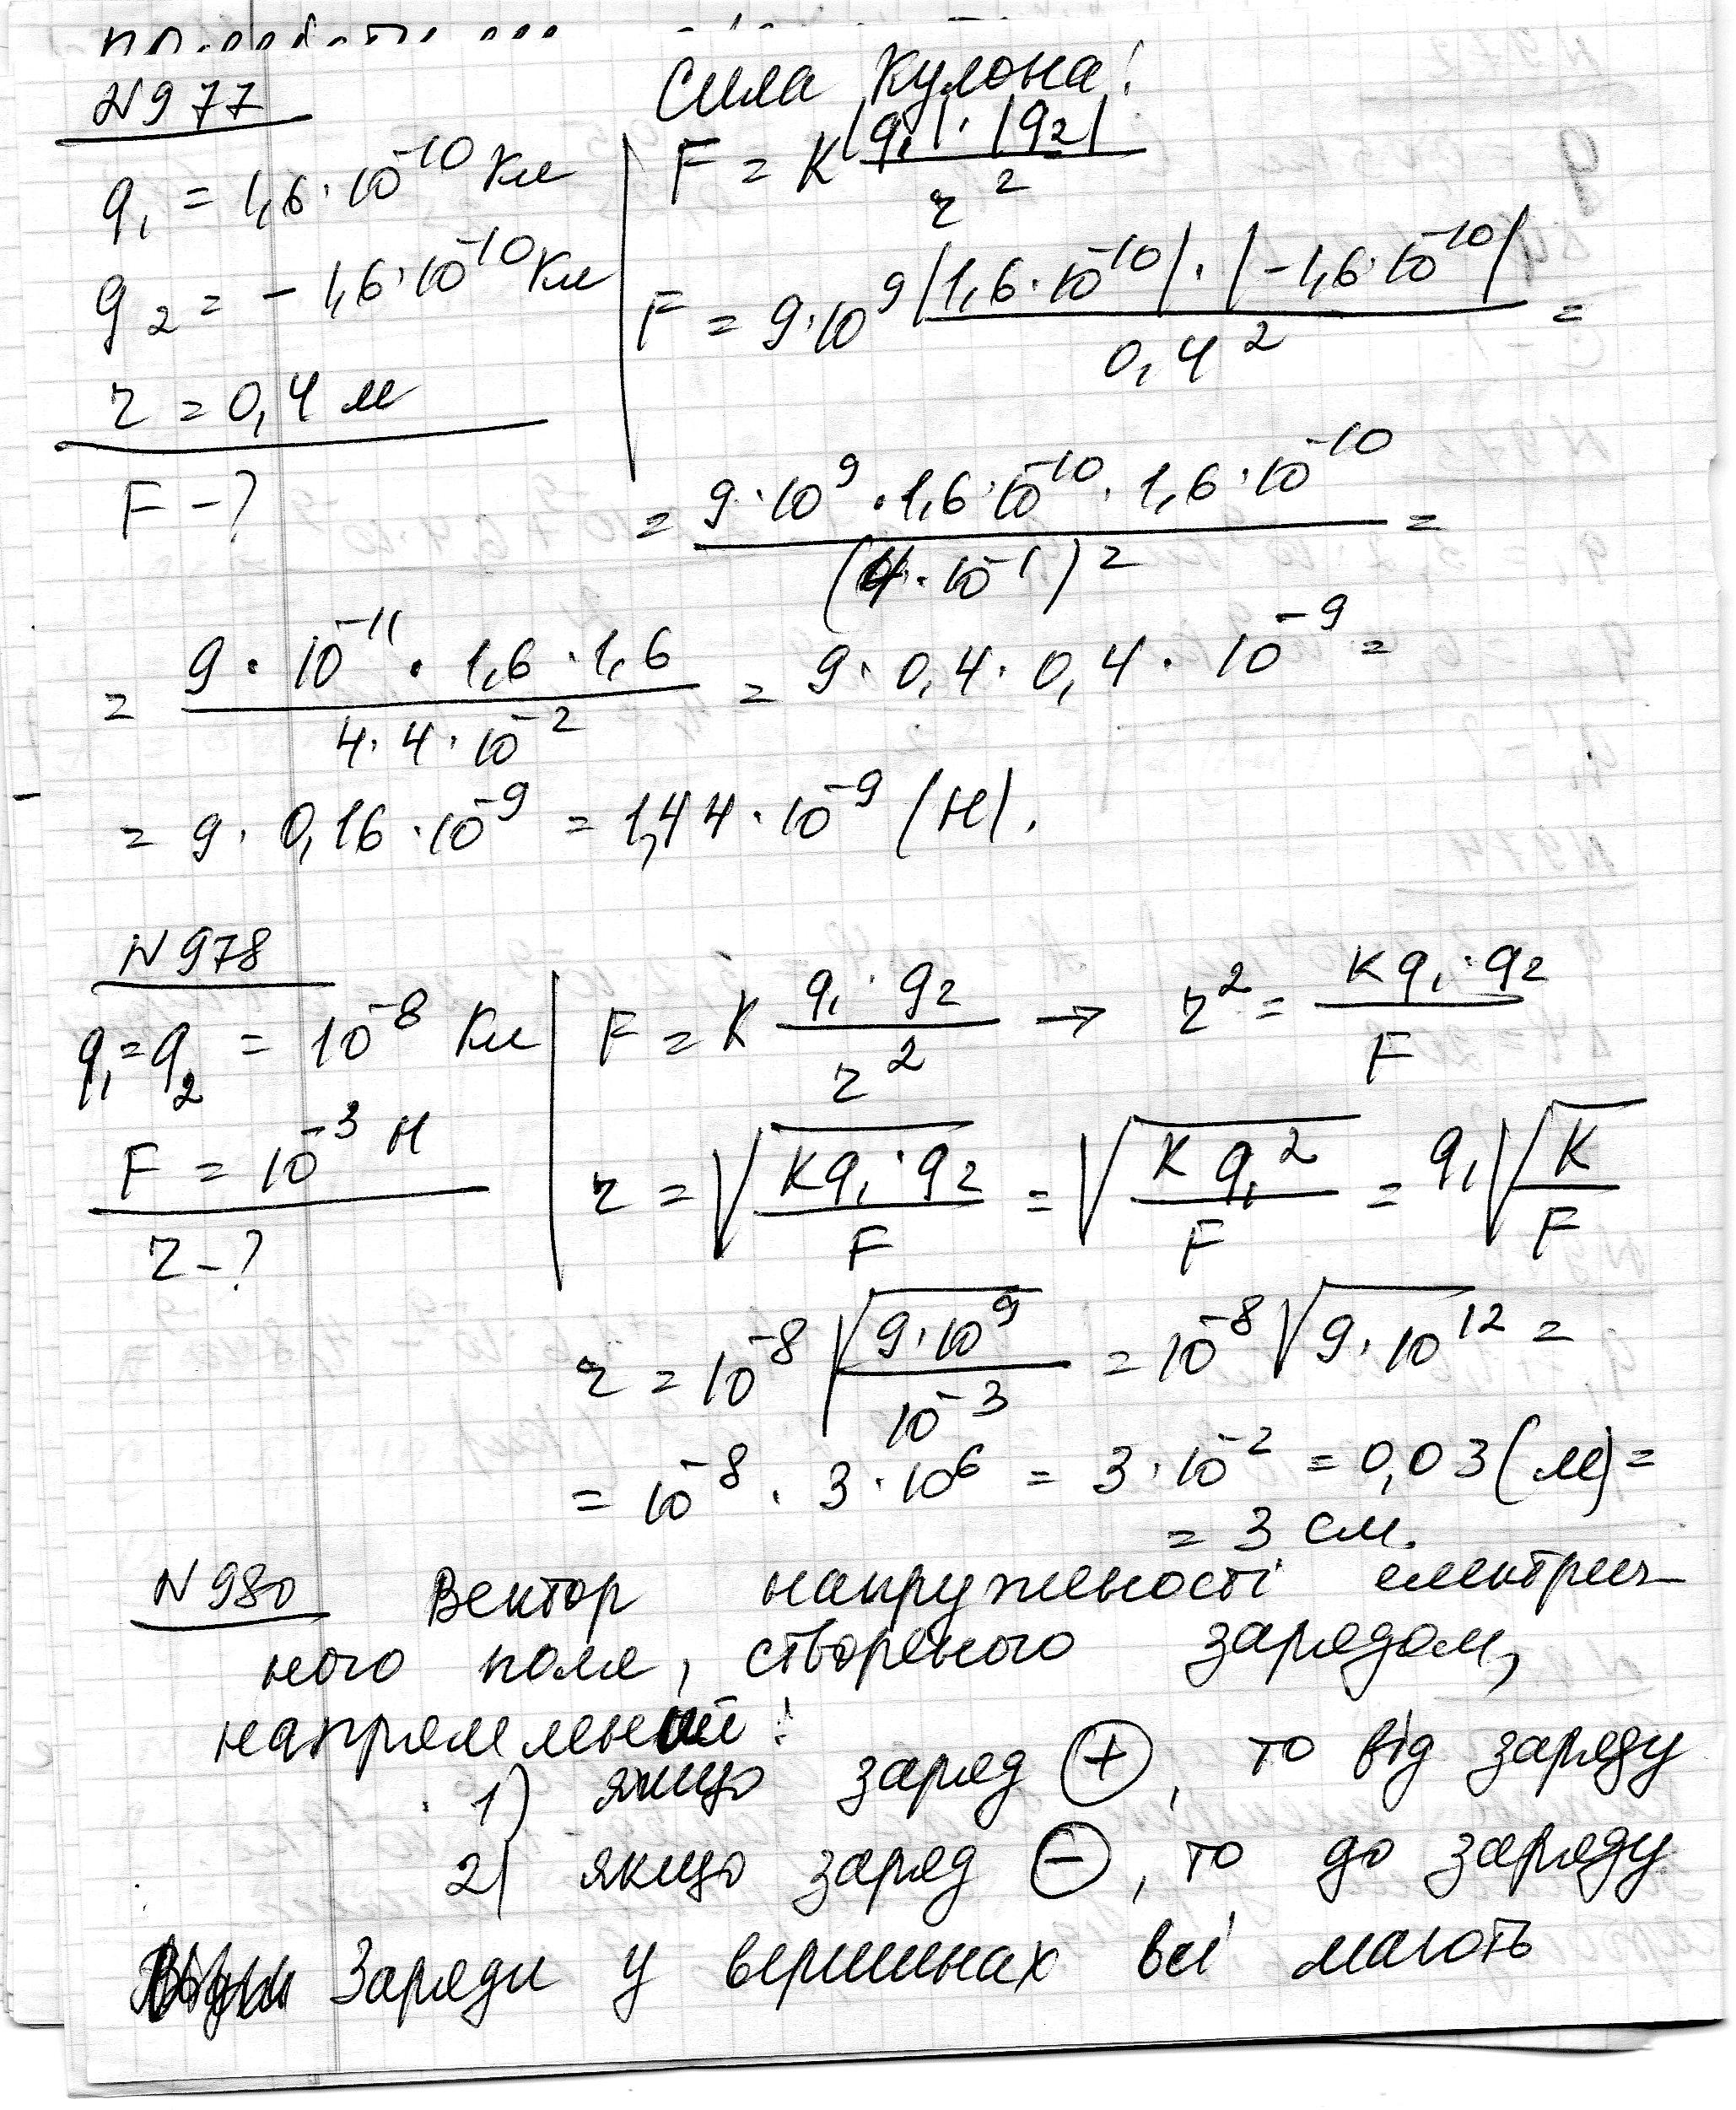 N977
Сила Кулона:
q₁ = 1,6·10⁻¹⁰ Кл
F = K |q₁|·|q₂| / r²
q₂ = -1,6·10⁻¹⁰ Кл
F = 9·10⁹ |1,6·10⁻¹⁰|·|-1,6·10⁻¹⁰| / 0,4² =
r = 0,4 м
F - ?
= 9·10⁹·1,6·10⁻¹⁰·1,6·10⁻¹⁰ / (4·10⁻¹)² =
= 9·10⁻¹¹·1,6·1,6 / 4·4·10⁻² = 9·0,4·0,4·10⁻⁹ =
= 9·0,16·10⁻⁹ = 1,44·10⁻⁹ (Н).
N978
q₁=q₂ = 10⁻⁸ Кл
F = K q₁·q₂ / r² → r² = Kq₁·q₂ / F
F = 10⁻³ Н
r = √(Kq₁·q₂ / F) = √(Kq₁² / F) = q₁√(K / F)
r - ?
r = 10⁻⁸ √(9·10⁹ / 10⁻³) = 10⁻⁸ √9·10¹² =
= 10⁻⁸ · 3·10⁶ = 3·10⁻² = 0,03 (м) =
= 3 см.
N980 Вектор напружености електрич-
ного поля, створеного зарядом,
напрямлений:
1) якщо заряд ⊕, то від заряду
2) якщо заряд ⊖, то до заряду
Заряди у вершинах всі мають